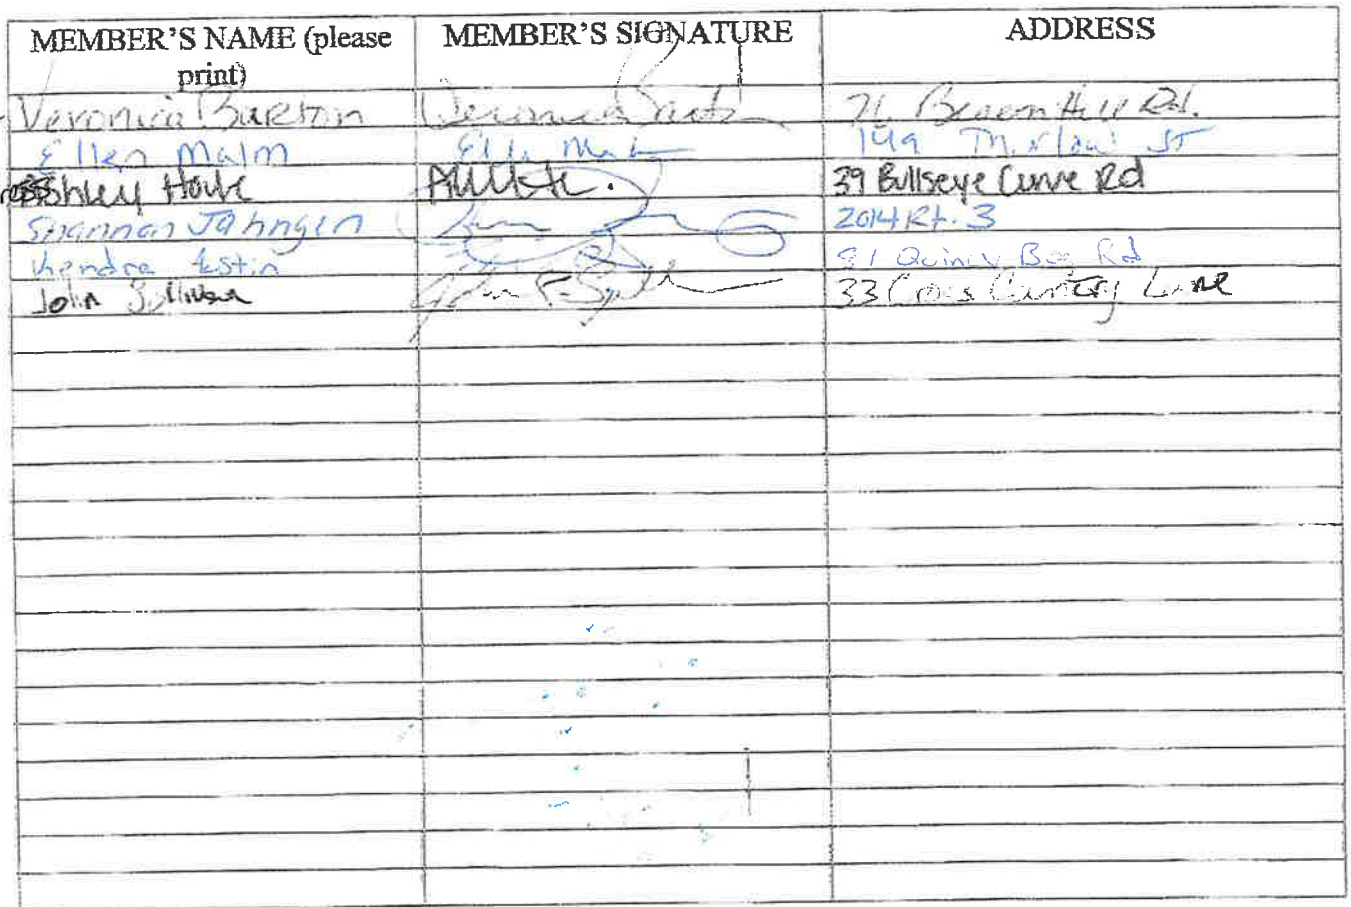 MEMBER'S NAME (please print) MEMBER'S SIGNATURE ADDRESS
Veronica Burton Veronica 71 Beacon Hill Rd.
Ellen Malm Ellen 149 St
Ashley 39 Bullseye Curve Rd
Shannon Jahngen 2014 Rt. 3
Kendra 91 Quincy Rd
John Sullivan John F. 33 Cross Country Lane